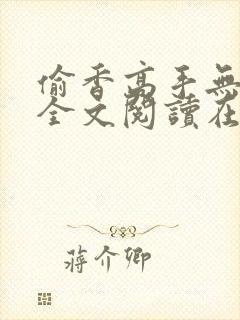 偷香高手無
全文閱讀在
蔣介卿